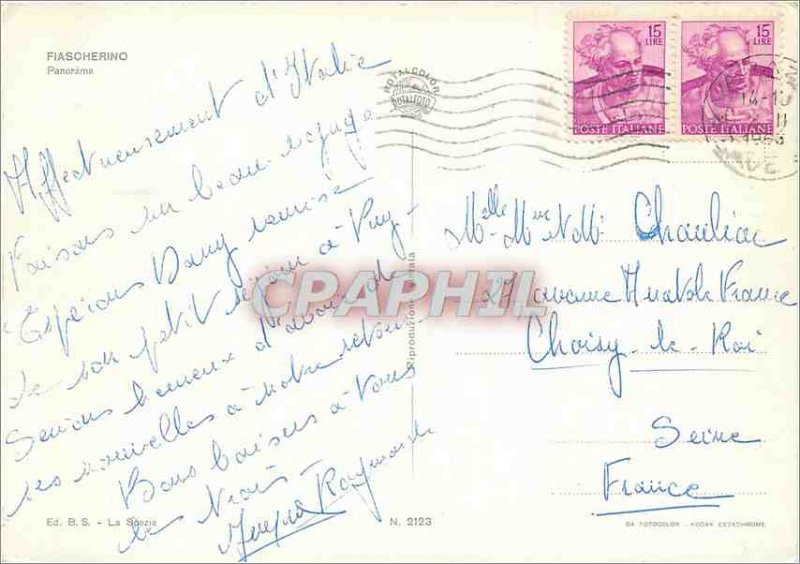 FIASCHERINO
Panorama
Affectueusement d'Italie
Faisons un beau voyage
Espérons Dany remise
de son petit séjour à Puy-
Serions heureux d'avoir de
ses nouvelles à notre retour
Bons baisers à vous
les
Raymonde
Ed. B. S. - La Spezia
N. 2123
Riproduzione vietata
ROTALCOLOR
ROTALFOTO
15 LIRE
POSTE ITALIANE
15 LIRE
POSTE ITALIANE
Melle Mme et Mr Chauliac
27 avenue Anatole France
Choisy-le-Roi
Seine
France
DA FOTOCOLOR - KODAK EKTACHROME
CPAPHIL